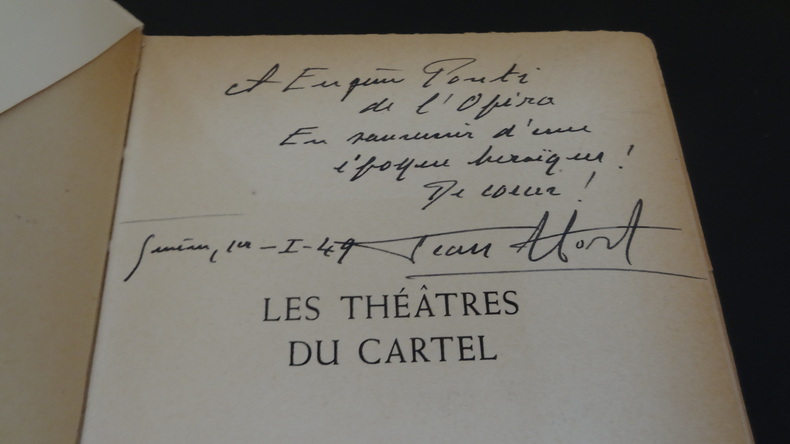 A Eugène Ponti
de l'Opéra
En souvenir d'une
époque héroïque !
De coeur !
1er - I - 49 Jean Mort
LES THÉÂTRES
DU CARTEL